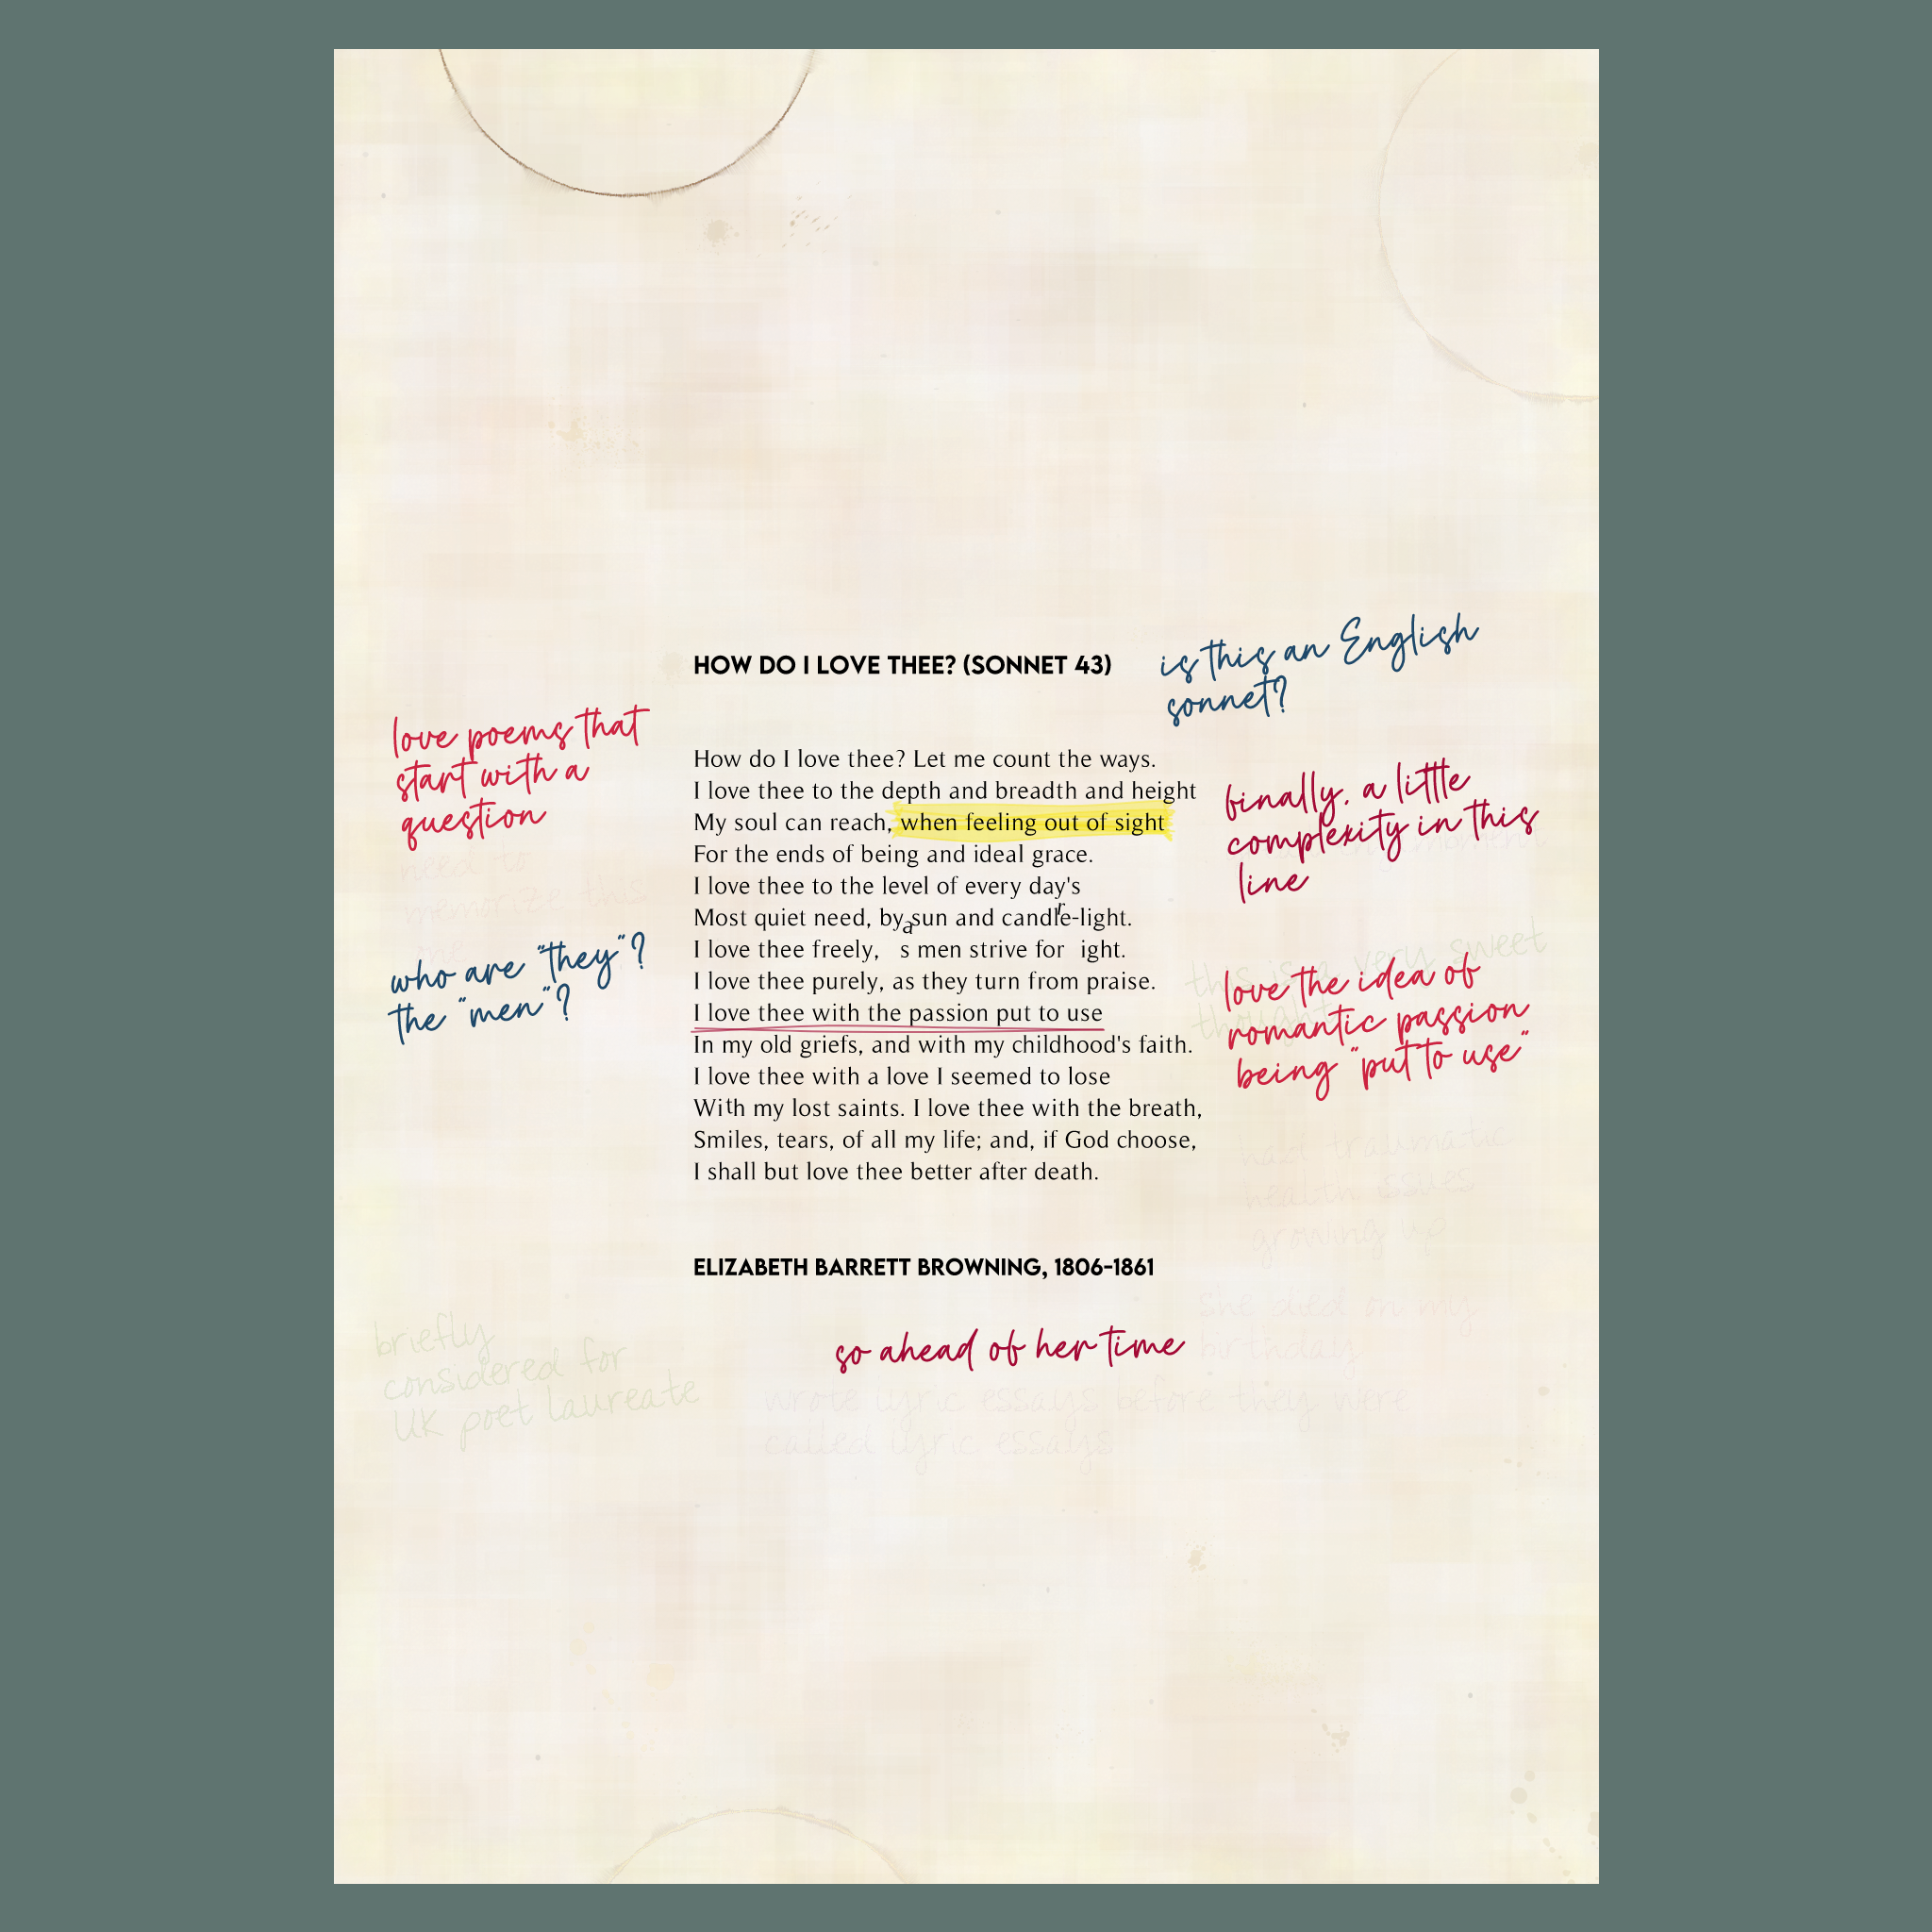 HOW DO I LOVE THEE? (SONNET 43)
is this an English
sonnet?
love poems that
start with a
question
need to
memorize this
one
who are "they"?
the "men"?
How do I love thee? Let me count the ways.
I love thee to the depth and breadth and height
My soul can reach, when feeling out of sight
For the ends of being and ideal grace.
I love thee to the level of every day's
Most quiet need, by sun and candle-light.
I love thee freely, as men strive for right.
I love thee purely, as they turn from praise.
I love thee with the passion put to use
In my old griefs, and with my childhood's faith.
I love thee with a love I seemed to lose
With my lost saints. I love thee with the breath,
Smiles, tears, of all my life; and, if God choose,
I shall but love thee better after death.
finally, a little
complexity in this
line
moment
this is a very sweet
thought
love the idea of
romantic passion
being "put to use"
had traumatic
health issues
growing up
ELIZABETH BARRETT BROWNING, 1806-1861
she died on my
birthday
so ahead of her time
briefly
considered for
UK poet laureate
wrote lyric essays before they were
called lyric essays